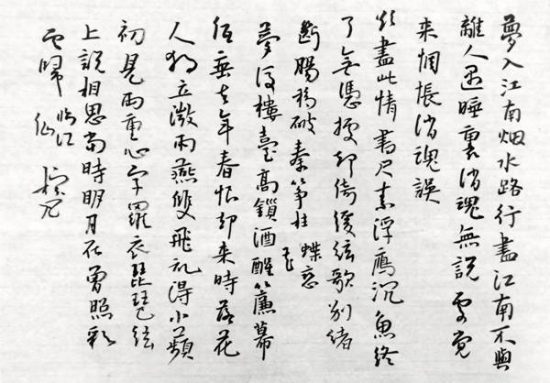 夢入江南烟水路行盡江南不與
離人遇睡裏消魂無說處覺
來惆悵消魂誤
欲盡此情書尺素浮鴈沉魚終
了無憑據却倚緩絃歌別緒
斷腸移破秦箏柱 蝶恋
花
夢後樓臺高鎖酒醒簾幕
低垂去年春恨却來時落花
人獨立微雨燕雙飛記得小蘋
初見兩重心字羅衣琵琶絃
上說相思當時明月在曾照彩
雲歸 臨江
仙